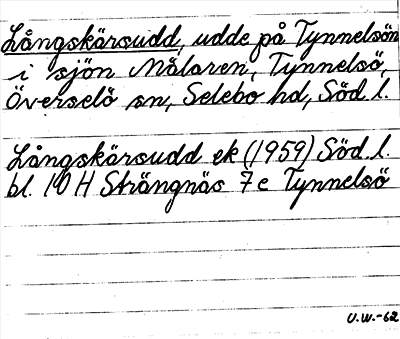 Långskärsudd, udde på Tynnelsön
i sjön Mälaren, Tynnelsö,
Överselö sn, Selebo hd, Söd. l.
Långskärsudd ek (1959) Söd. l.
bl. 10 H Strängnäs 7 c Tynnelsö
U.W.-62